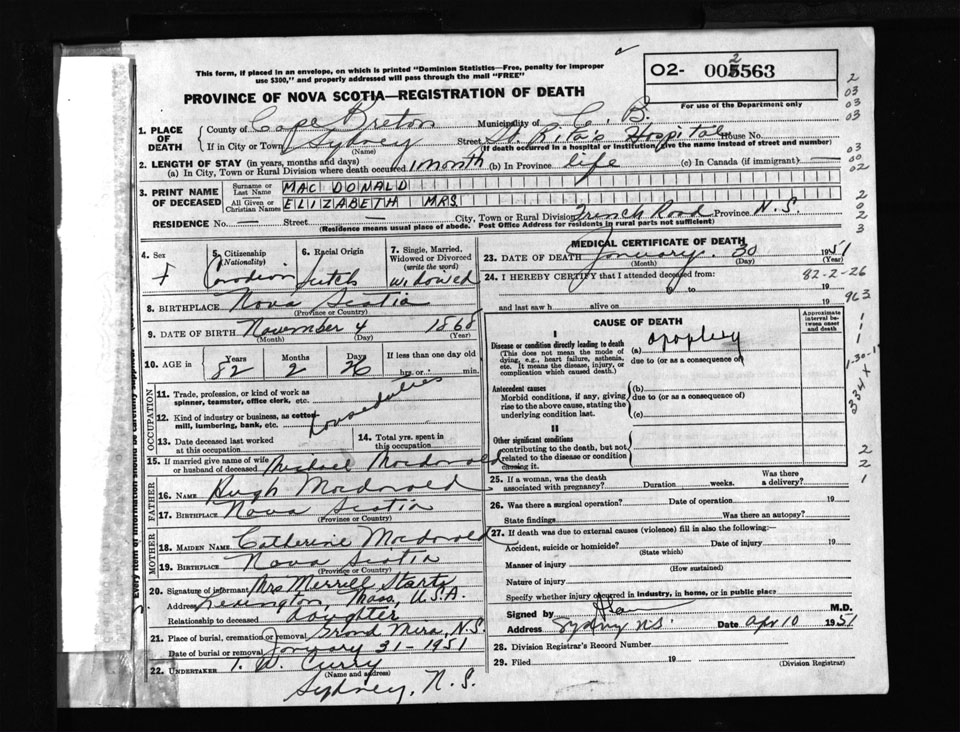 This form, if placed in an envelope, on which is printed "Dominion Statistics—Free, penalty for improper
use $300," and properly addressed will pass through the mail "FREE"
PROVINCE OF NOVA SCOTIA—REGISTRATION OF DEATH
O2- 005563
2
For use of the Department only
1. PLACE OF DEATH
County of Cape Breton Municipality of C. B.
If in City or Town Sydney (Name) Street St. Rita's Hospital House No.
(If death occurred in a hospital or institution, give the name instead of street and number)
2. LENGTH OF STAY (in years, months and days)
(a) In City, Town or Rural Division where death occurred 1 month (b) In Province life (c) In Canada (if immigrant) —
3. PRINT NAME OF DECEASED
Surname or Last Name MAC DONALD
All Given or Christian Names ELIZABETH MRS.
RESIDENCE No. Street — City, Town or Rural Division French Road Province N.S.
(Residence means usual place of abode. Post Office Address for residents in rural parts not sufficient)
4. Sex F
5. Citizenship (Nationality) Canadian
6. Racial Origin Scotch
7. Single, Married, Widowed or Divorced (write the word) widowed
8. BIRTHPLACE Nova Scotia
(Province or Country)
9. DATE OF BIRTH November 4 1868
(Month) (Day) (Year)
10. AGE in Years 82 Months 2 Days 26 If less than one day old hrs. or min.
OCCUPATION
11. Trade, profession or kind of work as spinner, teamster, office clerk, etc.
12. Kind of industry or business, as cotton mill, lumbering, bank, etc.
13. Date deceased last worked at this occupation
14. Total yrs. spent in this occupation
15. If married give name of wife or husband of deceased Michael Macdonald
FATHER
16. NAME Hugh Macdonald
17. BIRTHPLACE Nova Scotia
(Province or Country)
MOTHER
18. MAIDEN NAME Catherine Macdonald
19. BIRTHPLACE Nova Scotia
(Province or Country)
20. Signature of informant Mrs Merrill
Address Lexington, Mass, U.S.A.
Relationship to deceased daughter
21. Place of burial, cremation or removal Grand Mira, N.S.
Date of burial or removal January 31-1951
22. UNDERTAKER T. W. Curry
(Name and address)
Sydney, N.S.
MEDICAL CERTIFICATE OF DEATH
23. DATE OF DEATH January 30 1951
(Month) (Day) (Year)
24. I HEREBY CERTIFY that I attended deceased from:
19 to 19
and last saw h alive on 19
CAUSE OF DEATH
Approximate interval between onset and death
I
Disease or condition directly leading to death
(This does not mean the mode of dying, e.g., heart failure, asthenia, etc. It means the disease, injury, or complication which caused death.)
(a) apoplexy
due to (or as a consequence of)
Antecedent causes
Morbid conditions, if any, giving rise to the above cause, stating the underlying condition last.
(b)
due to (or as a consequence of)
(c)
II
Other significant conditions
contributing to the death, but not related to the disease or condition causing it.
25. If a woman, was the death associated with pregnancy? Duration weeks. Was there a delivery?
26. Was there a surgical operation? Date of operation 19
State findings Was there an autopsy?
27. If death was due to external causes (violence) fill in also the following:—
Accident, suicide or homicide? Date of injury 19
(State which)
Manner of injury
(How sustained)
Nature of injury
Specify whether injury occurred in industry, in home, or in public place
Signed by M.D.
Address Sydney NS. Date Apr 10 1951
28. Division Registrar's Record Number
29. Filed 19 (Division Registrar)
2
03
03
03
03
00
02
2
0
2
3
82-2-26
963
2
2
1